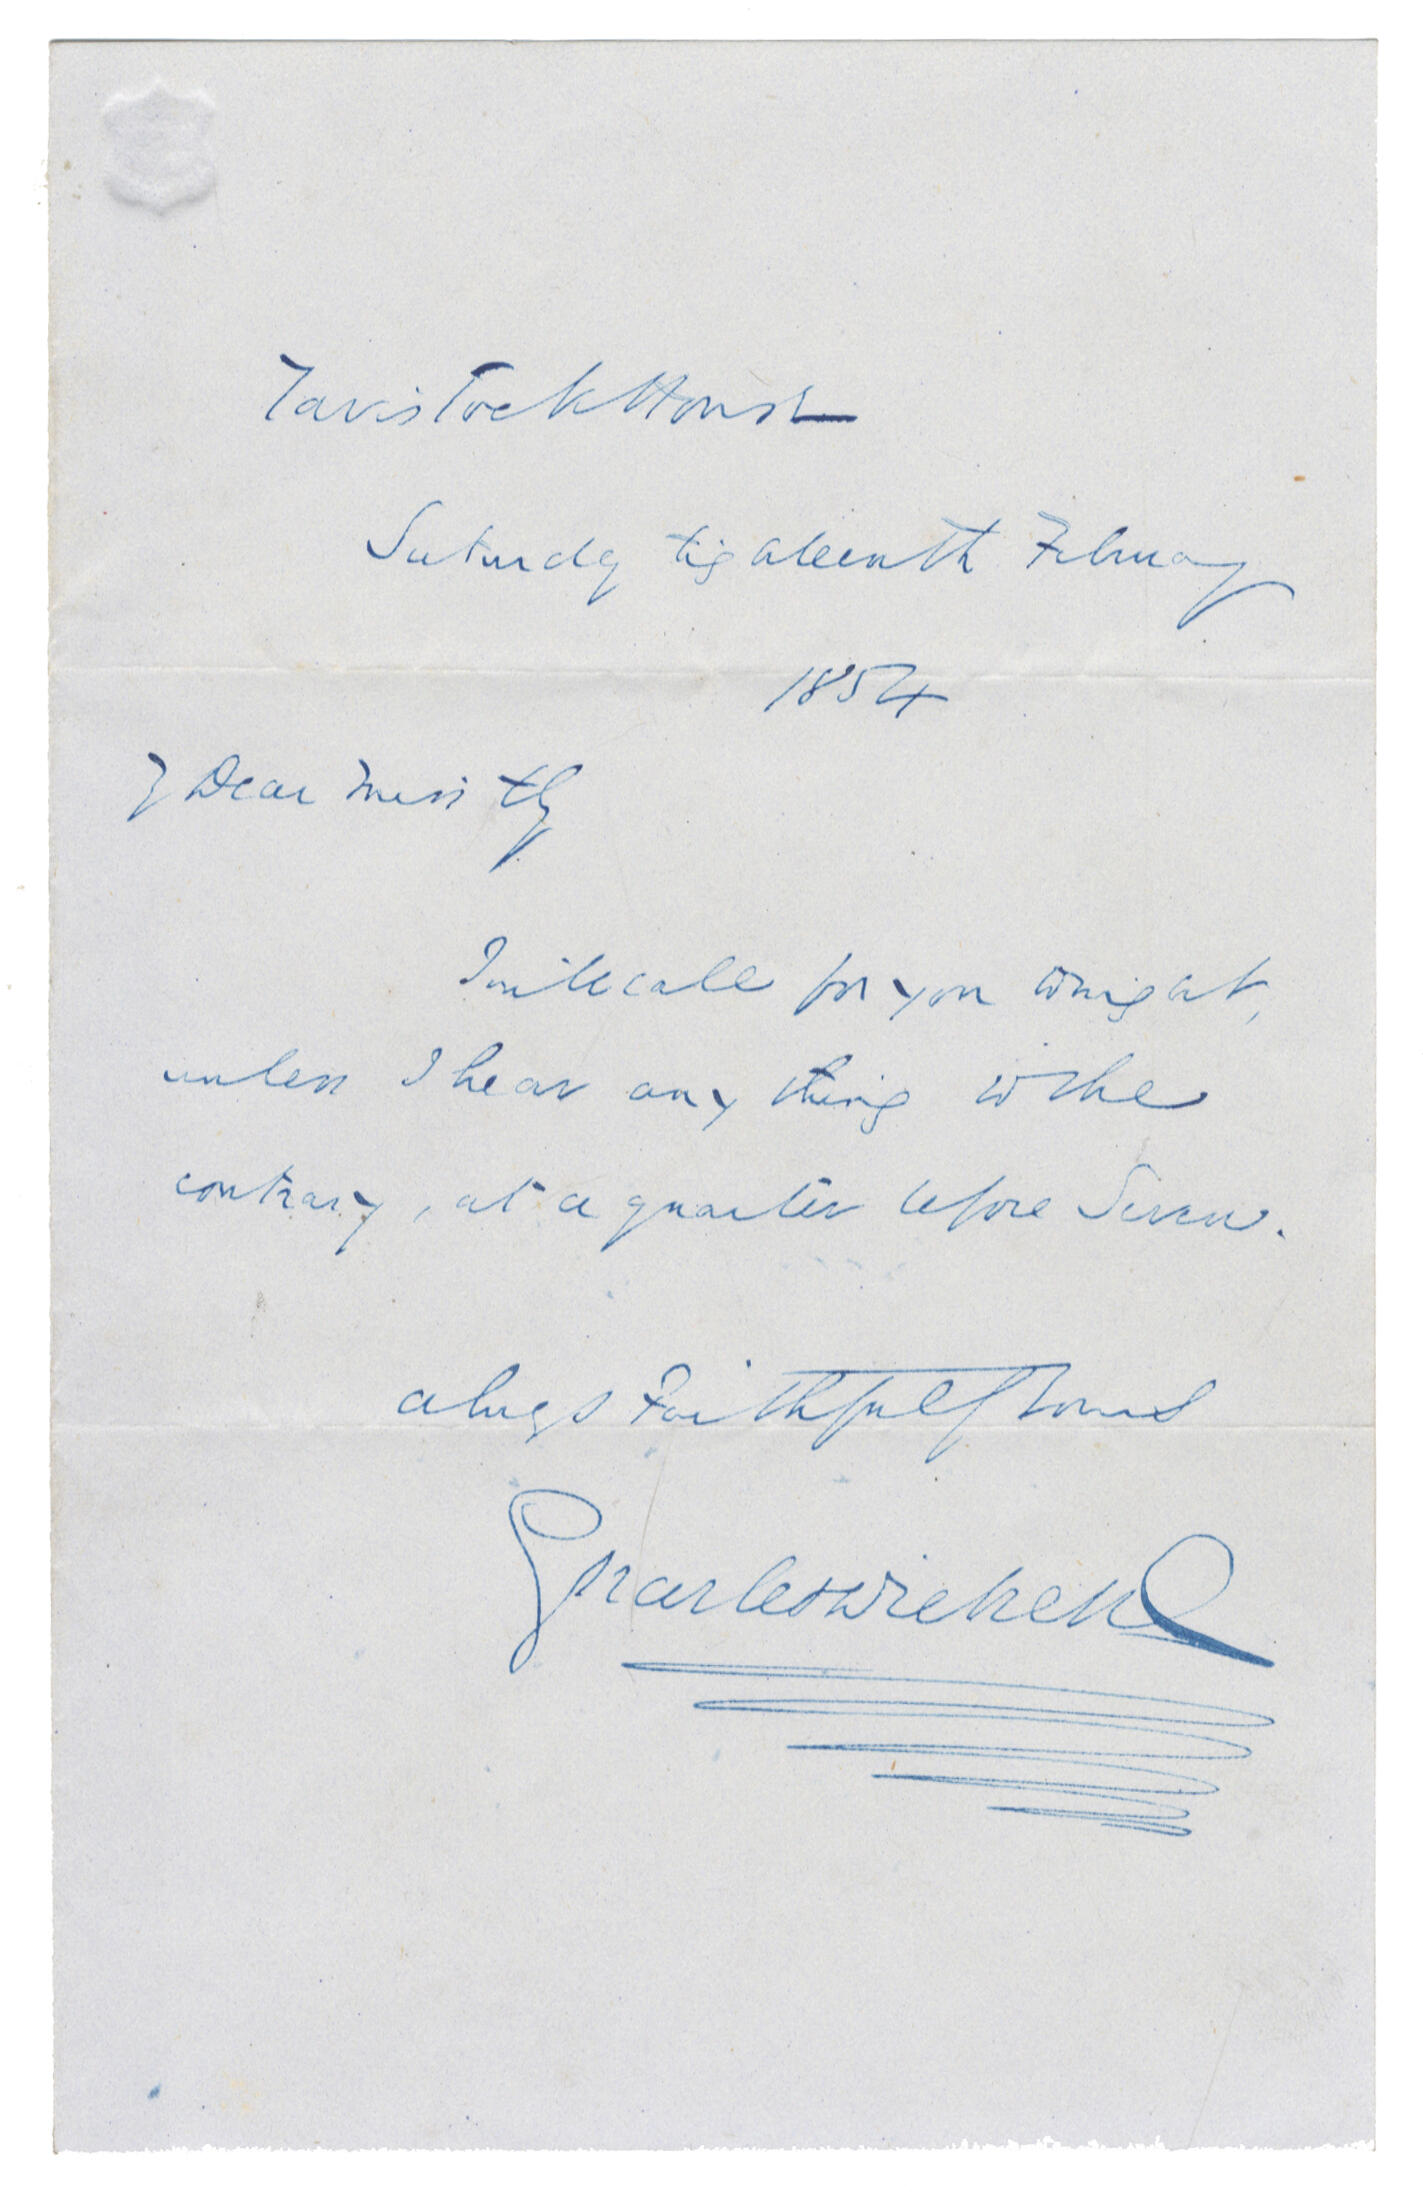 Tavistock House
Saturday Eighteenth February
1854
My Dear
I will call for you tonight,
unless I hear any thing to the
contrary, at a quarter before Seven.
always Faithfully Yours
Charles Dickens